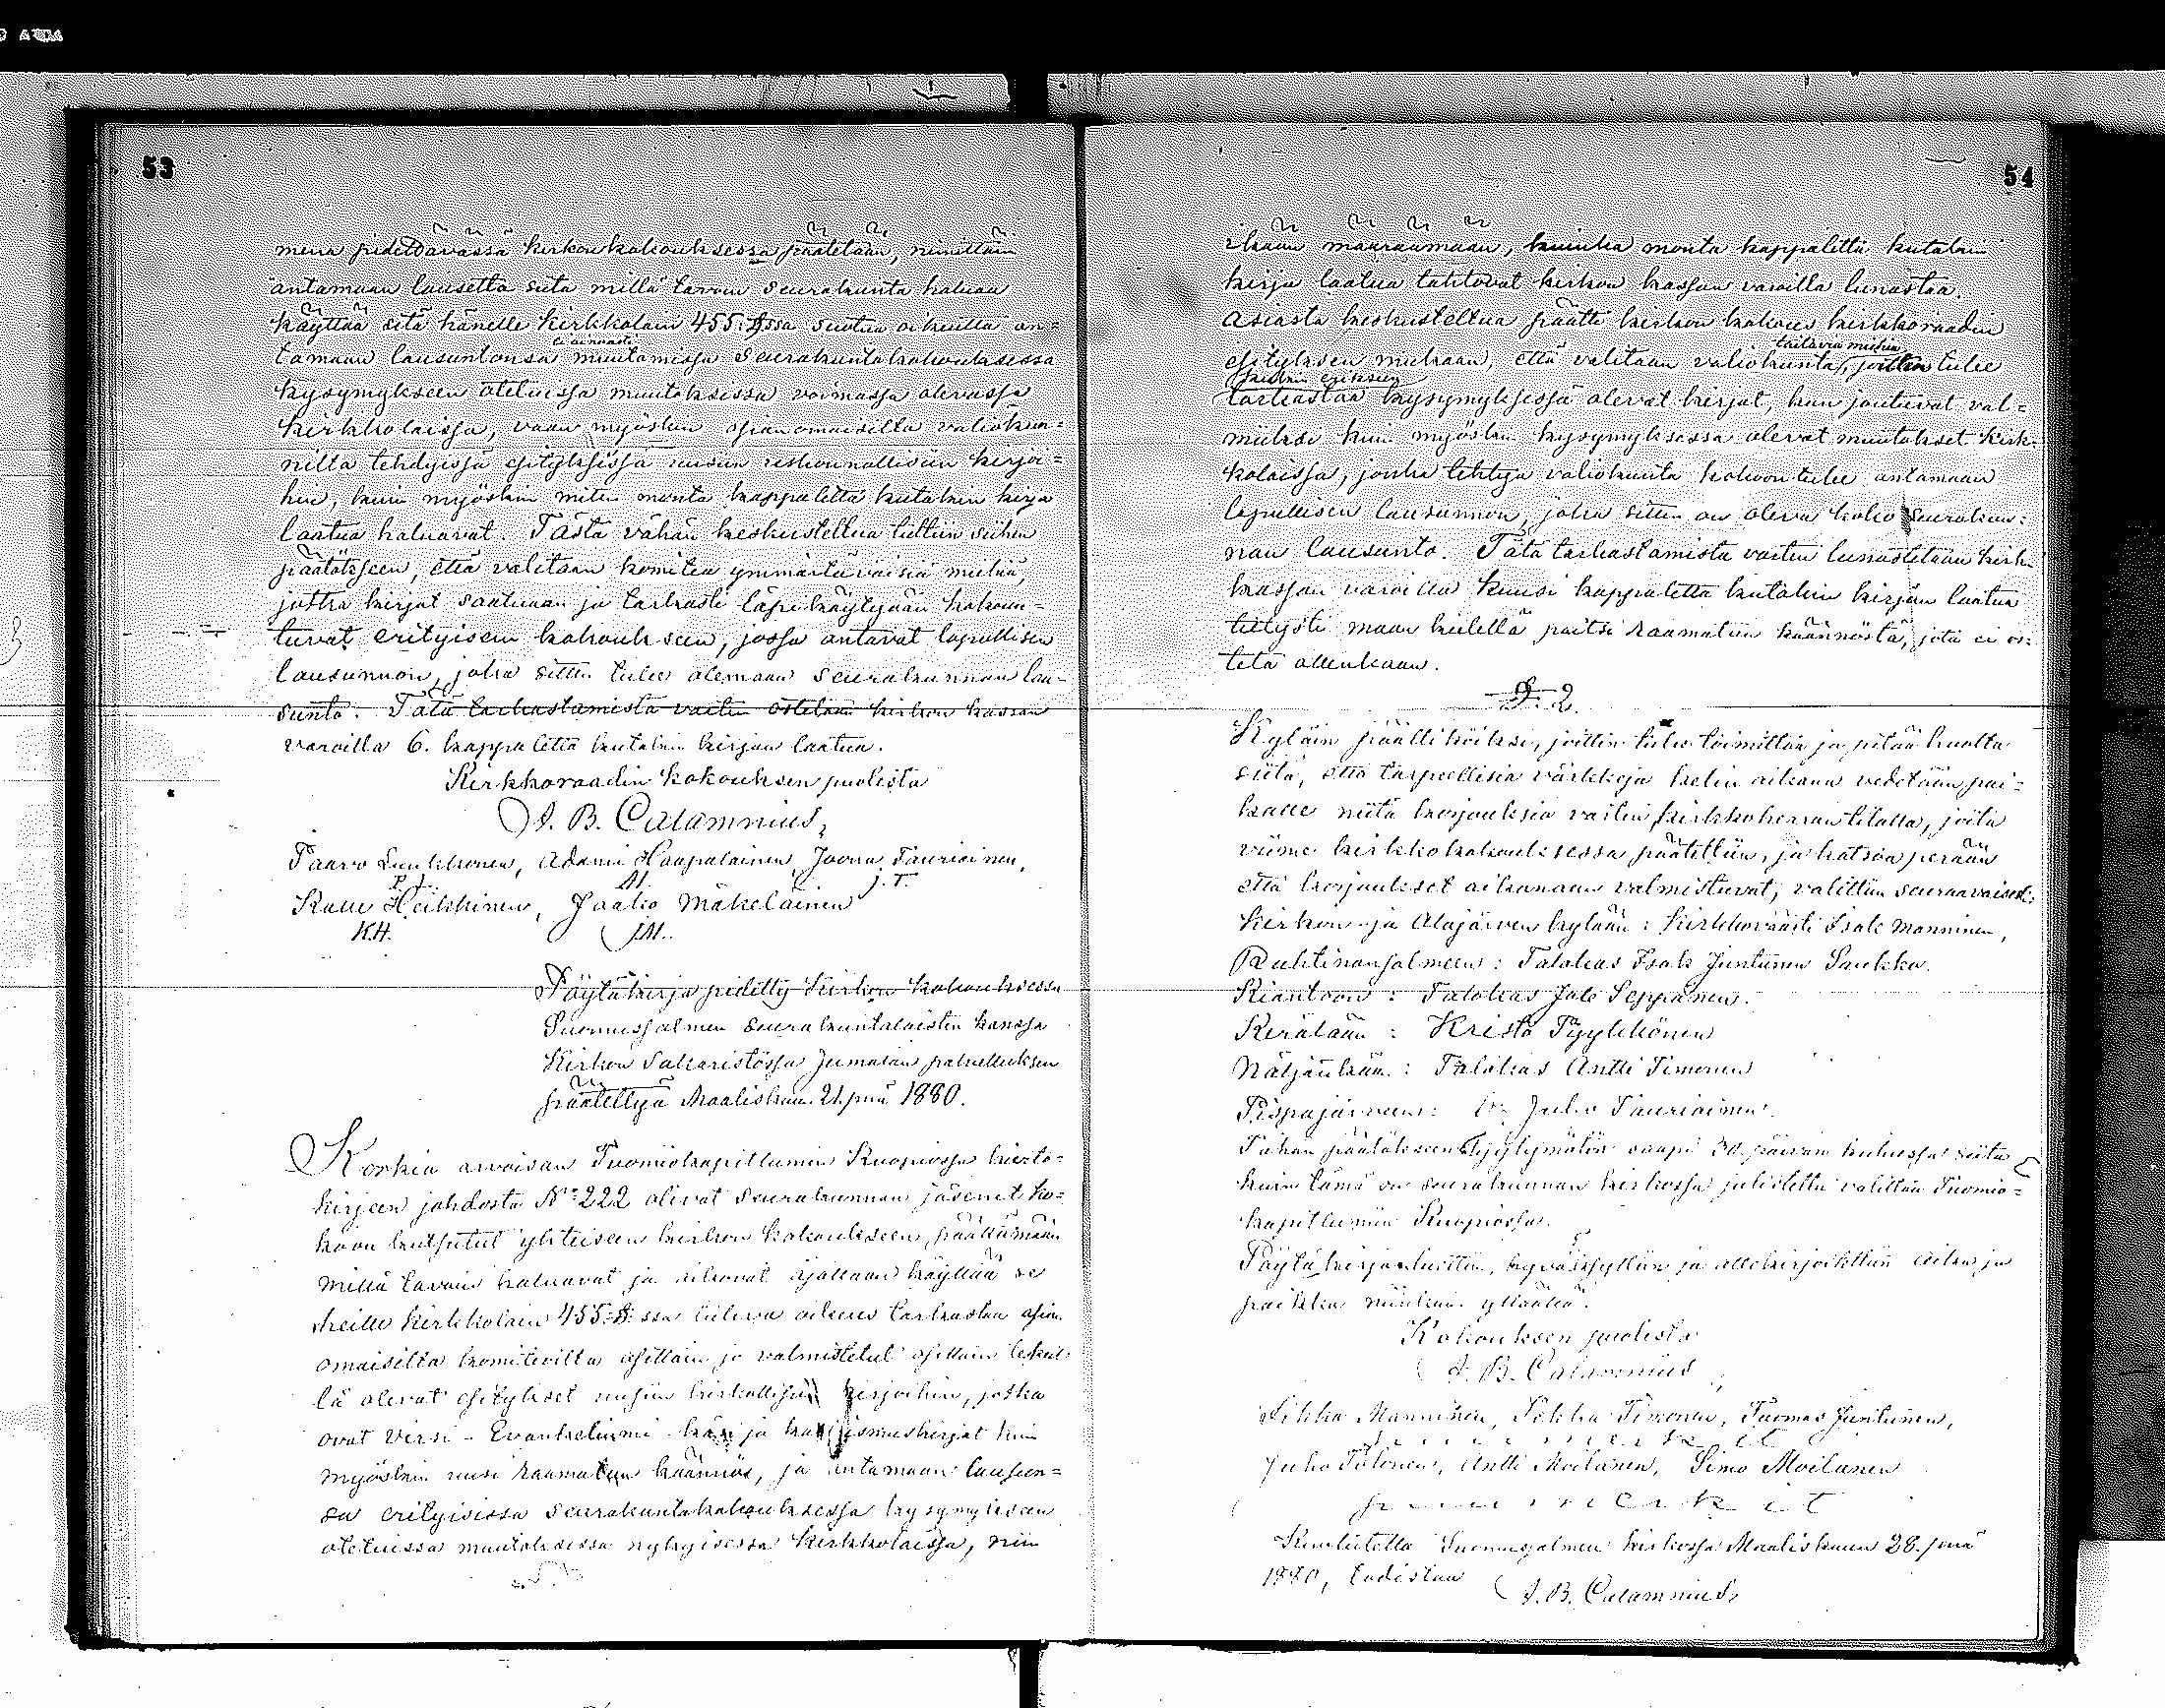 53
mena pidettävässä kirkonkokouksessa päätetään, nimittäin
antamaan lausetta siitä millä tavoin seurakunta haluaa
käyttää sitä hänelle kirkkolain 455:§ssa suotua oikeutta an=
tamaan lausuntonsa muutamissa seurakuntakokouksessa
kysymykseen otetuissa muutoksissa voimassa olevassa
kirkkolaissa, vaan myöskin asianomaiselta valiokun=
nilta tehdyissä esityksissä uusiin uskonnollisiin kirjoi=
hin, kuin myöskin miten monta kappaletta kutakin kirja
laatua haluavat. Tästä vähän keskusteltua tultiin siihen
päätökseen, että valitaan komitea ymmärtäväisiä miehiä,
jotka kirjat saatuaan ja tarkasti läpikäytyään kokoon=
tuvat erityiseen kokoukseen, jossa antavat lopullisen
lausunnon, joka sitten tulee olemaan seurakunnan lau=
sunto. Tätä tarkastamista varten ostetaan kirkon kassan
varoilla 6. kappaletta kutakin kirjan laatua.
Kirkkoraadin kokouksen puolesta
J. B. Calamnius,
Paavo Luukkonen, Adami Haapalainen, Joona Tauriainen,
P. L. J. T.
Kalle Heikkinen, Jaako Mäkeläinen
K.H. J.M.
Pöytäkirja pidetty kirkon kokouksessa
Suomussalmen seurakuntalaisten kanssa
kirkon Sakaristossa Jumalan palveluksen
päätettyä Maaliskuun 21. pnä 1880.
Korkia arvoisan Tuomiokapitlumin Kuopiossa kierto=
kirjeen johdosta No 222 olivat seurakunnan jäsenet ko=
koon kutsutut yhteiseen kirkon kokoukseen, päättämään
millä tavoin haluavat ja aikovat ajallaan käyttää se
heille kirkkolain 455:§:ssa tuleva oikeus tarkastaa asian
omaiselta komitevilta asettain jo valmistetut asettain
lä olevat esitykset uusiin kirkollisiin kirjoihin, jotka
ovat Virsi- Evankeliumi- käsi ja katkismuskirjat kuin
myöskin uusi raamatun käännös, ja antamaan lausun=
sa erityisissä seurakuntakokouksessa kysymykseen
otetuissa muutoksissa nykyisessä kirkkolaissa, niin
54
ikään määräämään, kuinka monta kappaletta kutakin
kirja laatua tahtovat kirkon kassan varoilla lunastaa.
Asiasta keskusteltua päätti kirkon kokous kirkkoraadin
taitavia miehiä
esityksen mukaan, että valitaan valiokunta, joitten tulee
tarkastaa kysymyksessä olevat kirjat, kun joutuvat val=
miiksi kuin myöskin kysymyksessä olevat muutokset kirk=
kolaissa, jonka tehtyä valiokunta kokoon tulee antamaan
lopullisen lausunnon, joka sitten on oleva koko seurakun=
nan lausunto. Tätä tarkastamista varten lunastetaan kirk.
kassan varoilla kuusi kappaletta kutakin kirjan laatua
tietysti maan kielellä paitsi Raamatun käännöstä, jota ei os=
teta ollenkaan.
§. 2.
Kyläin päälliköiksi, joitten tulee toimittaa ja pitää huolta
siitä, että tarpeellisia värkkejä kelin aikana vedetään pai=
kalle niitä korjouksia varten kirkkoherran titalla, joita
viime kirkkokokouksessa päätettiin, ja katsoa perään
että korjaukset aikanaan valmistuvat, valittiin seuraavaisesti:
Kirkon- ja Alajärven kylään: Kirkkoväärti Isak Manninen,
Ruhtinansalmeen: Talokas Isak Juntunen Saukko.
Kiantoon: Talokas Jak Seppänen.
Kerälään: Kristo Pyykkönen
Näljänkään: Talokas Antti Timonen
Pispajärveen: Juho Tauriainen.
Tähän päätökseen tyytymätön saapi 30. päivän kuluessa siitä
kuin tämä on seurakunnan kirkossa julistettu valittaa Tuomio=
kapitlumiin Kuopiossa.
Pöytäkirja luettiin, hyväksyttiin ja allekirjoitettiin aika ja
paikka niinkuin yllällä.
Kokouksen puolesta
J. B. Calamnius
Manninen, Pekka Timonen, Tuomas Juntunen,
Juho Tolonen, Antti Moilanen, Simo Moilanen
puumerkit
Kuulutettu Suomussalmen kirkossa Maaliskuun 28. pnä
1880, todistaa
J. B. Calamnius